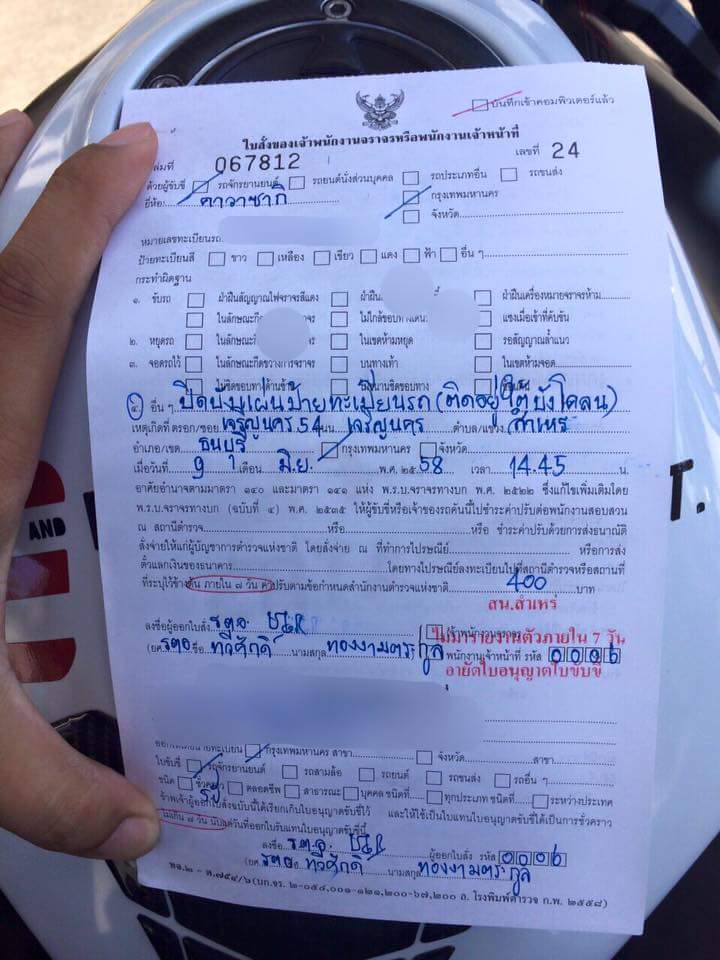 บันทึกเข้าคอมพิวเตอร์แล้ว
ใบสั่งของเจ้าพนักงานจราจรหรือพนักงานเจ้าหน้าที่
ล่มที่ 067812 เลขที่ 24
ด้วยผู้ขับขี่ รถจักรยานยนต์ รถยนต์นั่งส่วนบุคคล รถประเภทอื่น รถขนส่ง
ยี่ห้อ คาวาซากิ กรุงเทพมหานคร
จังหวัด
หมายเลขทะเบียนรถ
ป้ายทะเบียนสี ขาว เหลือง เขียว แดง ฟ้า อื่น ๆ
กระทำผิดฐาน
๑. ขับรถ ฝ่าฝืนสัญญาณไฟจราจรสีแดง ฝ่าฝืน ฝ่าฝืนเครื่องหมายจราจรห้าม
ในลักษณะกีด จร ไม่ใกล้ขอบทาง แซงเมื่อเข้าที่คับขัน
๒. หยุดรถ ในลักษณะกีด จร ในเขตห้ามหยุด รอสัญญาณล้ำแนว
๓. จอดรถไว้ ในลักษณะกีดขวางการจราจร บนทางเท้า ในเขตห้ามจอด
ไม่ชิดขอบทางด้านซ้าย
๔. อื่น ๆ ปิดบังแผ่นป้ายทะเบียนรถ (ติดอยู่ใต้บังโคลน)
เหตุเกิดที่ ตรอก/ซอย เจริญนคร 54 ถนน เจริญนคร ตำบล/แขวง สำเหร่
อำเภอ/เขต ธนบุรี กรุงเทพมหานคร จังหวัด
เมื่อวันที่ 9 เดือน มิ.ย. พ.ศ. ๒๕ 58 เวลา 14.45 น.
อาศัยอำนาจตามมาตรา ๑๔๐ และมาตรา ๑๔๑ แห่ง พ.ร.บ.จราจรทางบก พ.ศ. ๒๕๒๒ ซึ่งแก้ไขเพิ่มเติมโดย
พ.ร.บ.จราจรทางบก (ฉบับที่ ๔) พ.ศ. ๒๕๓๕ ให้ผู้ขับขี่หรือเจ้าของรถคันนี้ไปชำระค่าปรับต่อพนักงานสอบสวน
ณ สถานีตำรวจ หรือ หรือ ชำระค่าปรับด้วยการส่งธนาณัติ
สั่งจ่ายให้แก่ผู้บัญชาการตำรวจแห่งชาติ โดยสั่งจ่าย ณ ที่ทำการไปรษณีย์ หรือการส่ง
ตั๋วแลกเงินของธนาคาร โดยทางไปรษณีย์ลงทะเบียนไปที่สถานีตำรวจหรือสถานที่
ที่ระบุไว้ข้างต้น ภายใน ๗ วัน ค่าปรับตามข้อกำหนดสำนักงานตำรวจแห่งชาติ 400 บาท
สน.สำเหร่
ลงชื่อผู้ออกใบสั่ง ร.ต.อ.
ไม่มารายงานตัวภายใน 7 วัน
(ยศ รตอ ชื่อ ทวีศักดิ์ นามสกุล ทองงามตระกูล พนักงานเจ้าหน้าที่ รหัส 0006
อายัดใบอนุญาตใบขับขี่
กรุงเทพมหานคร สาขา จังหวัด สาขา
ใบขับขี่ รถจักรยานยนต์ รถสามล้อ รถยนต์ รถขนส่ง รถอื่น ๆ
ชนิด ชั่วคราว ตลอดชีพ สาธารณะ บุคคล ชนิดที่ ทุกประเภท ชนิดที่ ระหว่างประเทศ
ข้าพเจ้าผู้ออกใบสั่งฉบับนี้ได้เรียกเก็บใบอนุญาตขับขี่ไว้ และให้ใช้เป็นใบแทนใบอนุญาตขับขี่ได้เป็นการชั่วคราว
ไม่เกิน ๗ วัน นับแต่วันที่ออกใบรับแทนใบอนุญาตขับขี่นี้
ลงชื่อ ร.ต.อ. ผู้ออกใบสั่ง รหัส 0006
(ยศ รตอ ชื่อ ทวีศักดิ์ นามสกุล ทองงามตระกูล
พจ.๒ - ต.๗๕๔/๖ (บก.จร. ๒-๐๕๔,๐๐๑-๑๒๑,๒๐๐-๖๗,๒๐๐ ล. โรงพิมพ์ตำรวจ ก.พ. ๒๕๕๘)
AND
T.